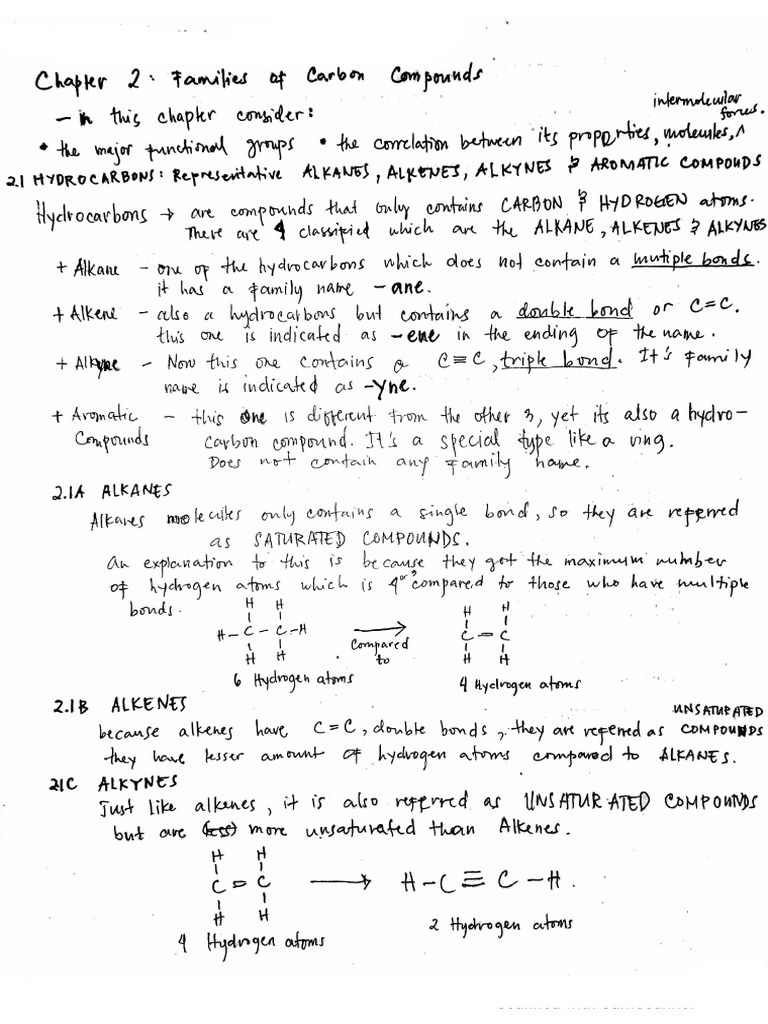 Chapter 2: Families of Carbon Compounds
- in this chapter consider:
• the major functional groups • the correlation between its properties, molecules, ^ intermolecular forces.
2.1 HYDROCARBONS: Representative ALKANES, ALKENES, ALKYNES & AROMATIC COMPOUDS
Hydrocarbons → are compounds that only contains CARBON & HYDROGEN atoms.
There are 4 classified which are the ALKANE, ALKENES & ALKYNES
+ Alkane - one of the hydrocarbons which does not contain a mutiple bonds.
it has a family name -ane.
+ Alkene - also a hydrocarbons but contains a double bond or C=C.
this one is indicated as -ene in the ending of the name.
+ Alkyne - Now this one contains a C≡C, triple bond. It's family
name is indicated as -yne.
+ Aromatic Compounds - this one is different from the other 3, yet its also a hydro-
carbon compound. It's a special type like a ring.
Does not contain any family name.
2.1A ALKANES
Alkanes molecules only contains a single bond, so they are referred
as SATURATED COMPOUNDS.
An explanation to this is because they got the maximum number
of hydrogen atoms which is 4 compared to those who have multiple
bonds.
H H
H-C-C-H
H H
Compared to
H H
C=C
H H
6 Hydrogen atoms
4 Hydrogen atoms
2.1B ALKENES
because alkenes have C=C, double bonds, they are referred as UNSATURATED COMPOUNDS
they have lesser amount of hydrogen atoms compared to ALKANES.
21C ALKYNES
Just like alkenes, it is also referred as UNSATURATED COMPOUNDS
but are (less) more unsaturated than Alkenes.
H H
C=C
H H
→ H-C≡C-H.
4 Hydrogen atoms
2 Hydrogen atoms